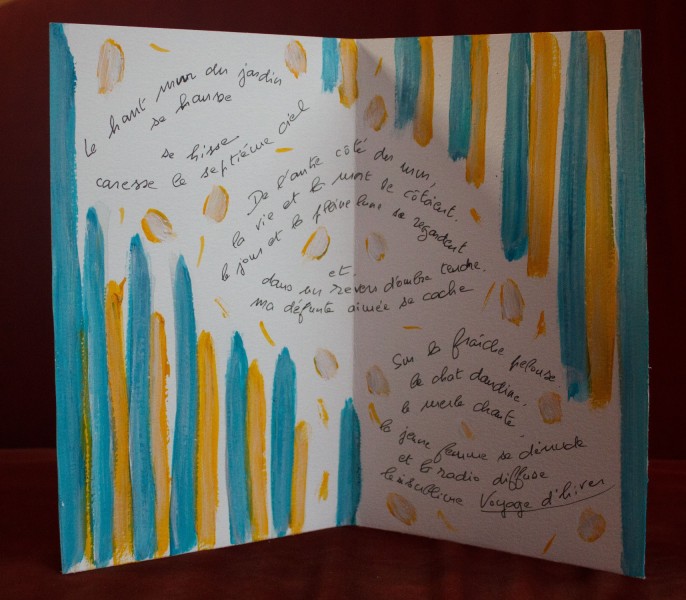 Le haut mur du jardin
se hausse
se hisse
caresse le septième ciel
De l'autre côté du mur,
la vie et la mort se côtoient.
le jour et la pleine lune se regardent
et.
dans un revers d'ombre tendre.
ma défunte aimée se cache
Sur la fraîche pelouse
le chat dandine.
le merle chante
la jeune femme se dénude
et la radio diffuse
le sublime Voyage d'hiver